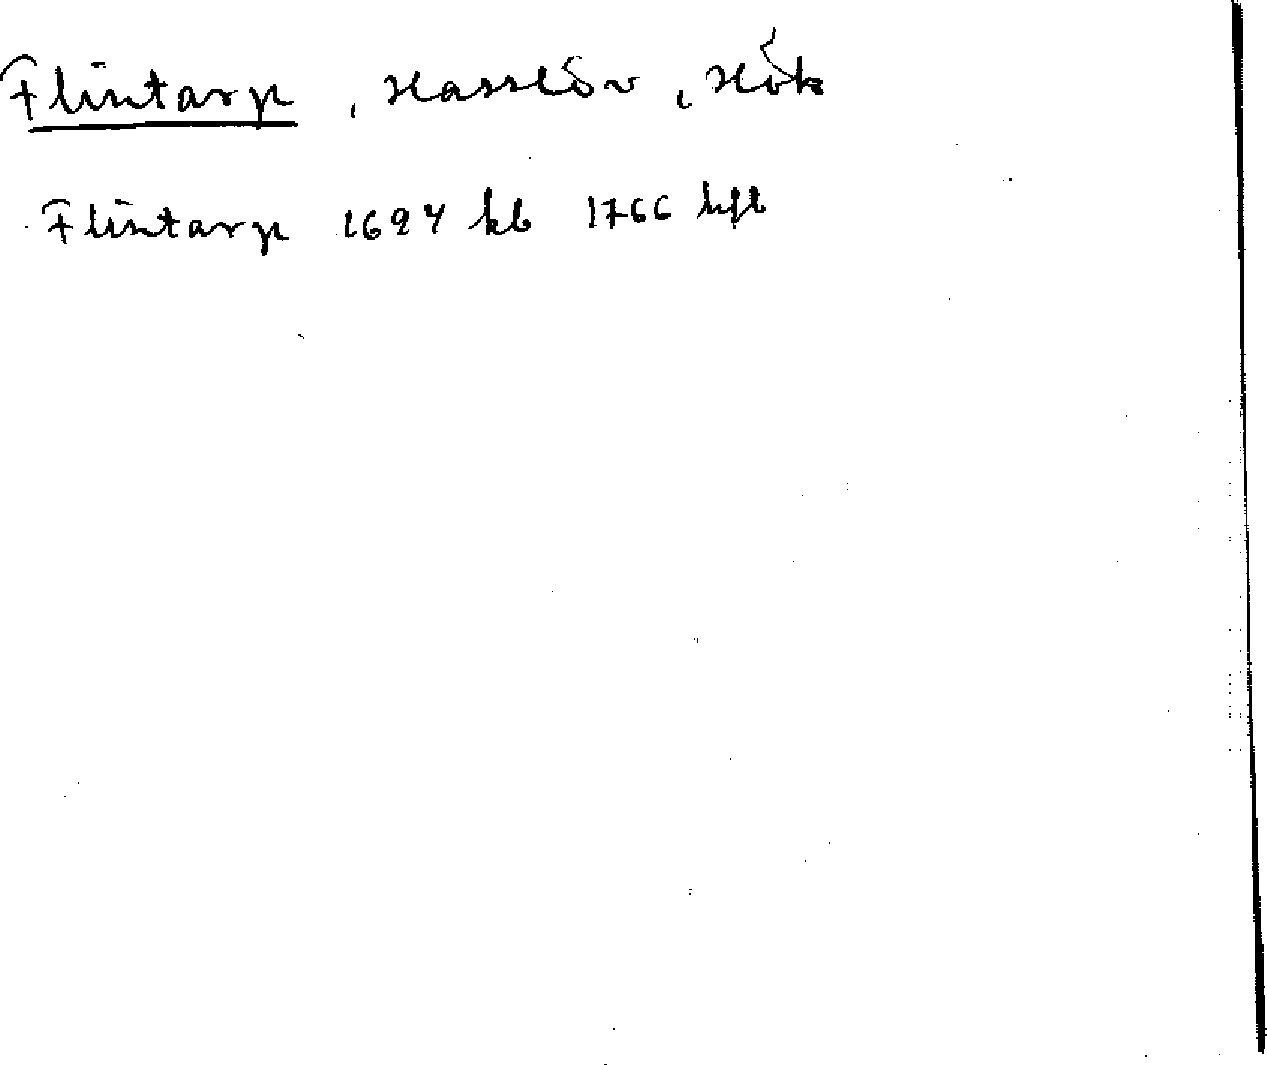 Flintarp, Hasslöv, Hök
Flintarp 1694 kb 1766 hfl